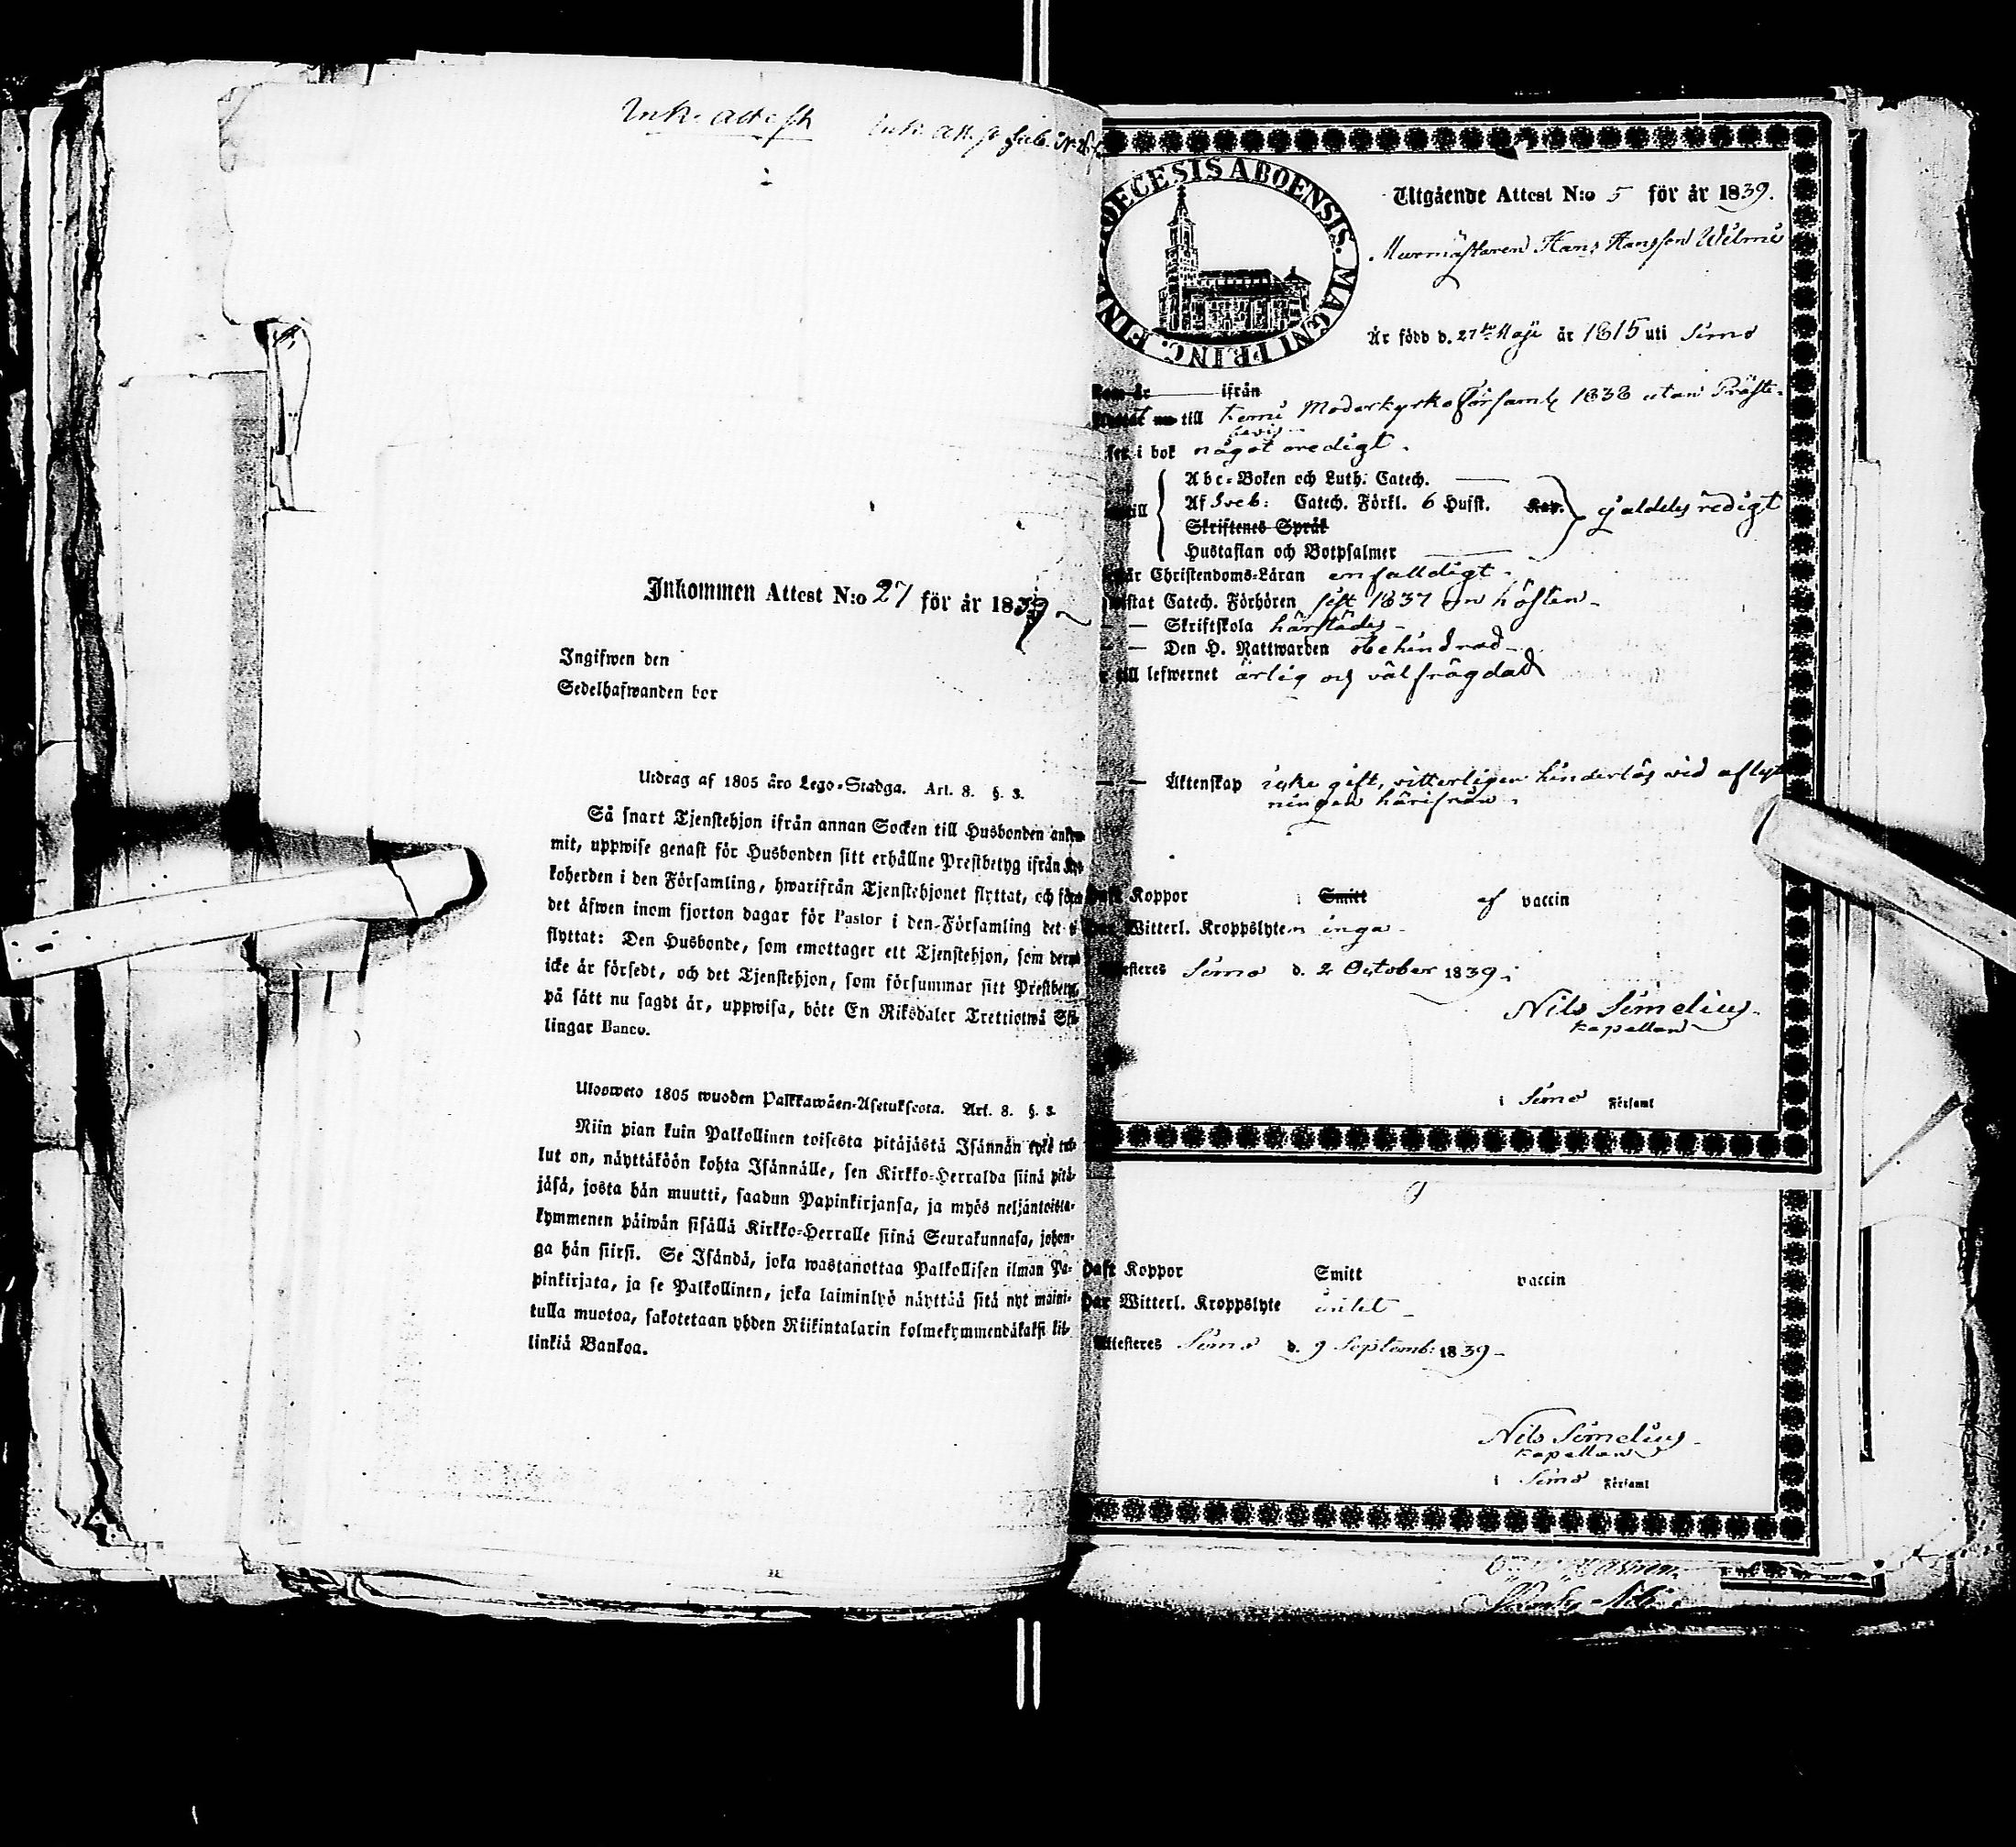 Ink. attest
Inkommen Attest N:o 27 för år 1839
Ingifwen den
Sedelhafwanden bor
Utdrag af 1805 års Lego-Stadga. Art. 8. §. 3.
Så snart Tjenstehjon ifrån annan Socken till Husbonden ankom-
mit, uppwise genast för Husbonden sitt erhållne Prestbetyg ifrån Kyr-
koherden i den Församling, hwarifrån Tjenstehjonet flyttat, och förete
det äfwen inom fjorton dagar för Pastor i den Församling det
flyttat: Den Husbonde, som emottager ett Tjenstehjon, som dermed
icke är försedt, och det Tjenstehjon, som försummar sitt Prestbetyg,
på sätt nu sagdt är, uppwisa, böte En Riksdaler Trettiotwå Skil-
lingar Banco.
Ulosweto 1805 wuoden Palkkawäen-Asetuksesta. Art. 8. §. 3.
Niin pian kuin Palkollinen toisesta pitäjästä Isännän tykö tul-
lut on, näyttäköön kohta Isännälle, sen Kirkko-Herralda siinä pitä-
jäsä, josta hän muutti, saadun Papinkirjansa, ja myös neljäntoista-
kymmenen päiwän sisällä Kirkko-Herralle siinä Seurakunnasa, johon-
ga hän siirsi. Se Isändä, joka wastanottaa Palkollisen ilman Pa-
pinkirjata, ja se Palkollinen, joka laiminlyö näyttää sitä nyt maini-
tulla muotoa, sakotetaan yhden Riikintalarin kolmekymmendäkaksi kil-
linkiä Bankoa.
DIOECESIS ABOENSIS. MAGNI PRINC. FINL.
Utgående Attest N:o 5 för år 1839.
Murmästaren Hans Hansson Wilmi
Är född d. 27de Maji år 1815 uti Simo
ifrån
till Kemi Moderkyrko Församl. 1838 utan Präste-
bevis
i bok något oredigt.
Abc-Boken och Luth. Catech.
Af Sveb: Catech. Förkl. 6 Hufst. Kap. ej aldeles redigt
Skriftenes Språk
Hustaflan och Botpsalmer
Christendoms-Läran enfalldigt.
Catech. Förhören sist 1837 om hösten
Skriftskola härstädes
Den H. Nattwarden obehindrad
till lefwernet ärlig och välfrägdad
Äktenskap icke gift, vitterligen hinderlös vid aflytt-
ningen härifrån.
Haft Koppor Smitt af vaccin
Har Witterl. Kroppslyten inga
Attesteres Simo d. 2 October 1839.
Nils Simelius
Kapellan
i Simo Församl
Haft Koppor Smitt vaccin
Har Witterl. Kroppslyte intet
Attesteres Simo d. 9 Septemb: 1839
Nils Simelius
Kapellan
i Simo Församl